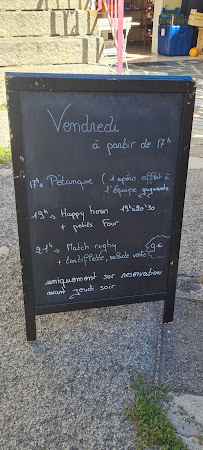 Vendredi
à partir de 17h
17h Pétanque (1 apéro offert à
l'équipe gagnante
19h → Happy hour 19h à 20h30
+ petits Four
21h → Match rugby 9€
+ tartiflette, salade verte
uniquement sur reservation
avant jeudi soir